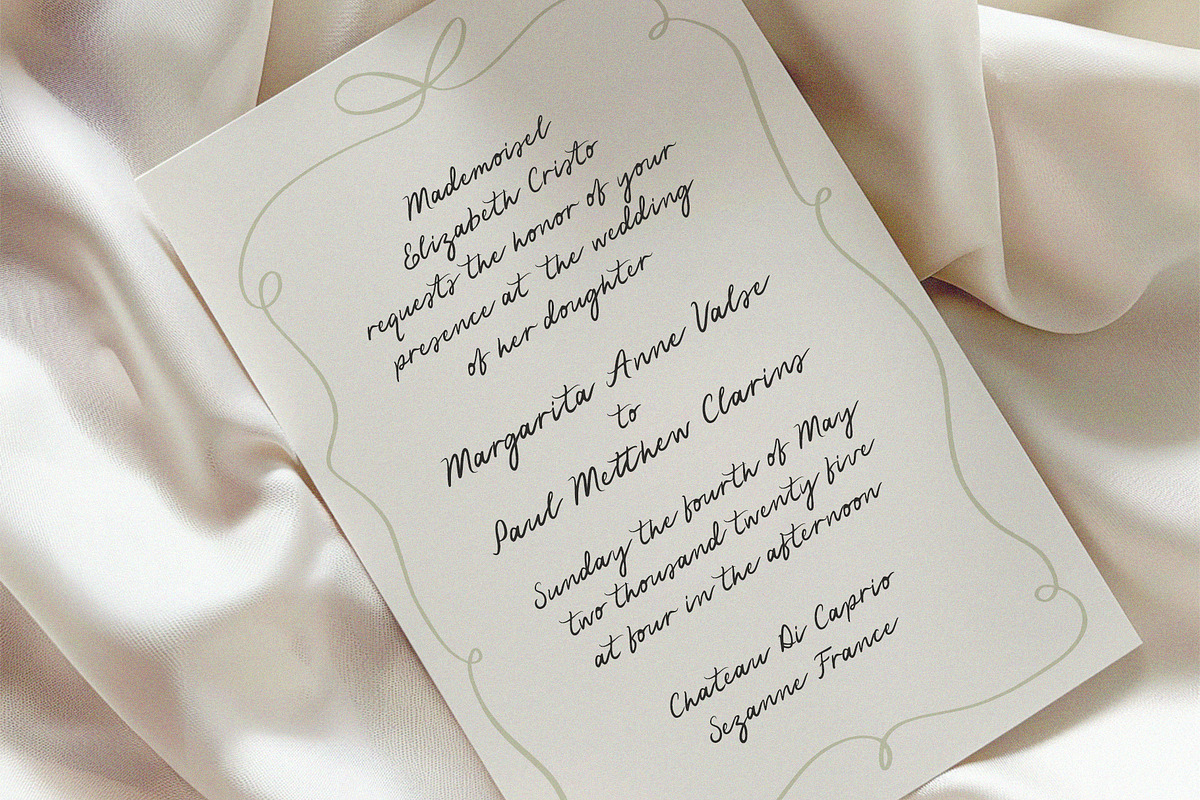 Mademoisel
Elizabeth Cristo
requests the honor of your
presence at the wedding
of her doughter
Margarita Anne Valse
to
Paul Metthew Clarins
Sunday the fourth of May
two thousand twenty five
at four in the afternoon
Chateau Di Caprio
Sezanne France